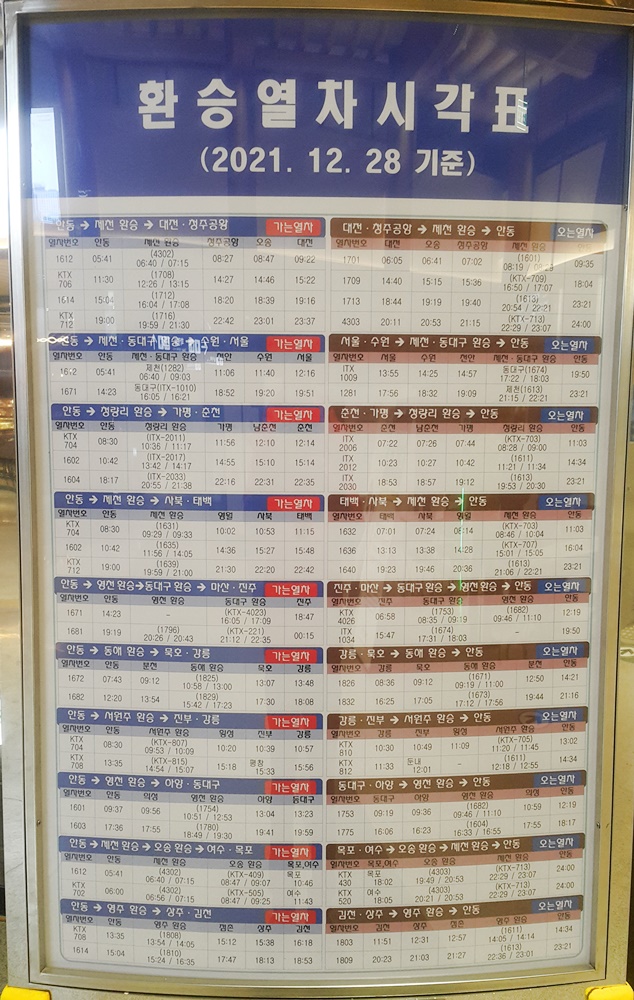 환승열차시각표
(2021. 12. 28 기준)
안동 → 제천 환승 → 대전·청주공항 가는열차
열차번호 안동 제천 환승 청주공항 오송 대전
1612 05:41 (4302) 06:40 / 07:15 08:27 08:47 09:22
KTX 706 11:30 (1708) 12:26 / 13:15 14:27 14:46 15:22
1614 15:04 (1712) 16:04 / 17:08 18:20 18:39 19:16
KTX 712 19:00 (1716) 19:59 / 21:30 22:42 23:01 23:37
대전·청주공항 → 제천 환승 → 안동 오는열차
열차번호 대전 오송 청주공항 제천 환승 안동
1701 06:05 06:41 07:02 (1601) 08:19 / 09:35
1709 14:40 15:15 15:36 (KTX-709) 16:50 / 17:07 18:04
1713 18:44 19:19 19:40 (1613) 20:54 / 22:21 23:21
4303 20:11 20:53 21:15 (KTX-713) 22:29 / 23:07 24:00
안동 → 제천·동대구 환승 → 수원·서울 가는열차
열차번호 안동 제천·동대구 환승 천안 수원 서울
1612 05:41 제천(1282) 06:40 / 09:03 11:06 11:40 12:16
1671 14:23 동대구(ITX-1010) 16:05 / 16:21 18:52 19:20 19:51
서울·수원 → 제천·동대구 환승 → 안동 오는열차
열차번호 서울 수원 천안 제천·동대구 환승 안동
ITX 1009 13:55 14:25 14:57 동대구(1674) 17:22 / 18:03 19:50
1281 17:56 18:32 19:09 제천(1613) 21:15 / 22:21 23:21
안동 → 청량리 환승 → 가평·춘천 가는열차
열차번호 안동 청량리 환승 가평 남춘천 춘천
KTX 704 08:30 (ITX-2011) 10:36 / 11:17 11:56 12:10 12:14
1602 10:42 (ITX-2017) 13:42 / 14:17 14:55 15:10 15:14
1604 18:17 (ITX-2033) 20:55 / 21:38 22:16 22:31 22:35
춘천·가평 → 청량리 환승 → 안동 오는열차
열차번호 춘천 남춘천 가평 청량리 환승 안동
ITX 2006 07:22 07:26 07:44 (KTX-703) 08:28 / 09:00 11:03
ITX 2012 10:23 10:27 10:42 (1611) 11:21 / 11:34 14:34
ITX 2030 18:53 18:57 19:12 (1613) 19:53 / 20:30 23:21
안동 → 제천 환승 → 사북·태백 가는열차
열차번호 안동 제천 환승 영월 사북 태백
KTX 704 08:30 (1631) 09:29 / 09:33 10:02 10:53 11:15
1602 10:42 (1635) 11:56 / 14:05 14:36 15:27 15:48
KTX 712 19:00 (1639) 19:59 / 21:00 21:30 22:20 22:42
태백·사북 → 제천 환승 → 안동 오는열차
열차번호 태백 사북 영월 제천 환승 안동
1632 07:01 07:24 08:14 (KTX-703) 08:46 / 10:04 11:03
1636 13:13 13:38 14:28 (KTX-707) 15:01 / 15:05 16:04
1640 19:23 19:46 20:36 (1613) 21:06 / 22:21 23:21
안동 → 영천 환승→동대구 환승 → 마산·진주 가는열차
열차번호 안동 영천 환승 동대구 환승 진주
1671 14:23 – (KTX-4023) 16:05 / 17:09 18:47
1681 19:19 (1796) 20:26 / 20:43 (KTX-221) 21:12 / 22:35 00:15
진주·마산 →동대구 환승 →영천 환승 → 안동 오는열차
열차번호 진주 동대구 환승 영천 환승 안동
KTX 4026 06:58 (1753) 08:35 / 09:19 (1682) 09:46 / 11:10 12:19
ITX 1034 15:47 (1674) 17:31 / 18:03 – 19:50
안동 → 동해 환승 → 묵호·강릉 가는열차
열차번호 안동 분천 동해 환승 묵호 강릉
1672 07:43 09:12 (1825) 10:58 / 13:00 13:07 13:48
1682 12:20 13:54 (1829) 15:42 / 17:23 17:30 18:08
강릉·묵호 → 동해 환승 → 안동 오는열차
열차번호 강릉 묵호 동해 환승 분천 안동
1826 08:36 09:12 (1671) 09:19 / 11:00 12:50 14:21
1832 16:25 17:05 (1673) 17:12 / 17:56 19:44 21:16
안동 → 서원주 환승 → 진부·강릉 가는열차
열차번호 안동 서원주 환승 횡성 진부 강릉
KTX 704 08:30 (KTX-807) 09:53 / 10:09 10:20 10:39 10:57
KTX 708 13:35 (KTX-815) 14:54 / 15:07 15:18 평창 15:33 15:56
강릉·진부 → 서원주 환승 → 안동 오는열차
열차번호 강릉 진부 횡성 서원주 환승 안동
KTX 810 10:30 10:49 11:09 (KTX-705) 11:20 / 11:45 13:02
KTX 812 11:33 둔내 12:01 – (1611) 12:18 / 12:55 14:34
안동 → 영천 환승 → 하양·동대구 가는열차
열차번호 안동 의성 영천 환승 하양 동대구
1601 09:37 09:56 (1754) 10:51 / 12:53 13:04 13:23
1603 17:36 17:55 (1780) 18:49 / 19:30 19:41 19:59
동대구·하양 → 영천 환승 → 안동 오는열차
열차번호 동대구 하양 영천 환승 의성 안동
1753 09:19 09:36 (1682) 09:46 / 11:10 10:59 12:19
1775 16:06 16:23 (1604) 16:33 / 16:55 17:55 18:17
안동 → 제천 환승 → 오송 환승 → 여수·목포 가는열차
열차번호 안동 제천 환승 오송 환승 목포,여수
1612 05:41 (4302) 06:40 / 07:15 (KTX-409) 08:47 / 09:07 목포 10:46
KTX 702 06:00 (4302) 06:56 / 07:15 (KTX-505) 08:47 / 09:25 여수 11:43
목포·여수 → 오송 환승 → 제천 환승 → 안동 오는열차
열차번호 목포,여수 오송 환승 제천 환승 안동
KTX 430 목포 18:02 (4303) 19:49 / 20:53 (KTX-713) 22:29 / 23:07 24:00
KTX 520 여수 18:05 (4303) 20:21 / 20:53 (KTX-713) 22:29 / 23:07 24:00
안동 → 영주 환승 → 상주·김천 가는열차
열차번호 안동 영주 환승 점촌 상주 김천
KTX 708 13:35 (1808) 13:54 / 14:05 15:12 15:38 16:18
1614 15:04 (1810) 15:24 / 16:35 17:47 18:13 18:53
김천·상주 → 영주 환승 → 안동 오는열차
열차번호 김천 상주 점촌 영주 환승 안동
1803 11:51 12:31 12:57 (1611) 14:05 / 14:14 14:34
1809 20:23 21:03 21:27 (1613) 22:36 / 23:01 23:21